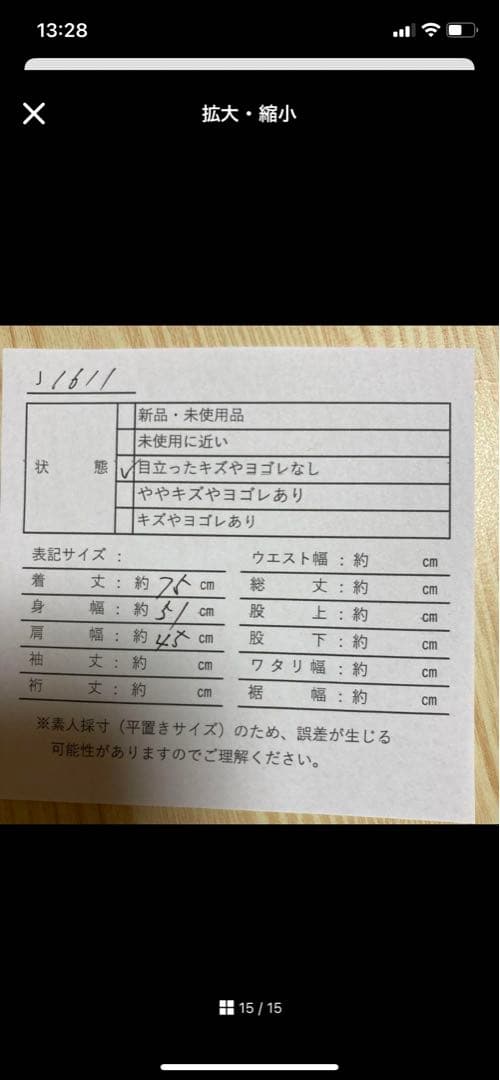 13:28
拡大・縮小
J 1611
状態
新品・未使用品
未使用に近い
✓ 目立ったキズやヨゴレなし
ややキズやヨゴレあり
キズやヨゴレあり
表記サイズ：
着丈：約 75 cm
身幅：約 51 cm
肩幅：約 45 cm
袖丈：約 cm
裄丈：約 cm
ウエスト幅：約 cm
総丈：約 cm
股上：約 cm
股下：約 cm
ワタリ幅：約 cm
裾幅：約 cm
※素人採寸（平置きサイズ）のため、誤差が生じる
可能性がありますのでご理解ください。
15 / 15